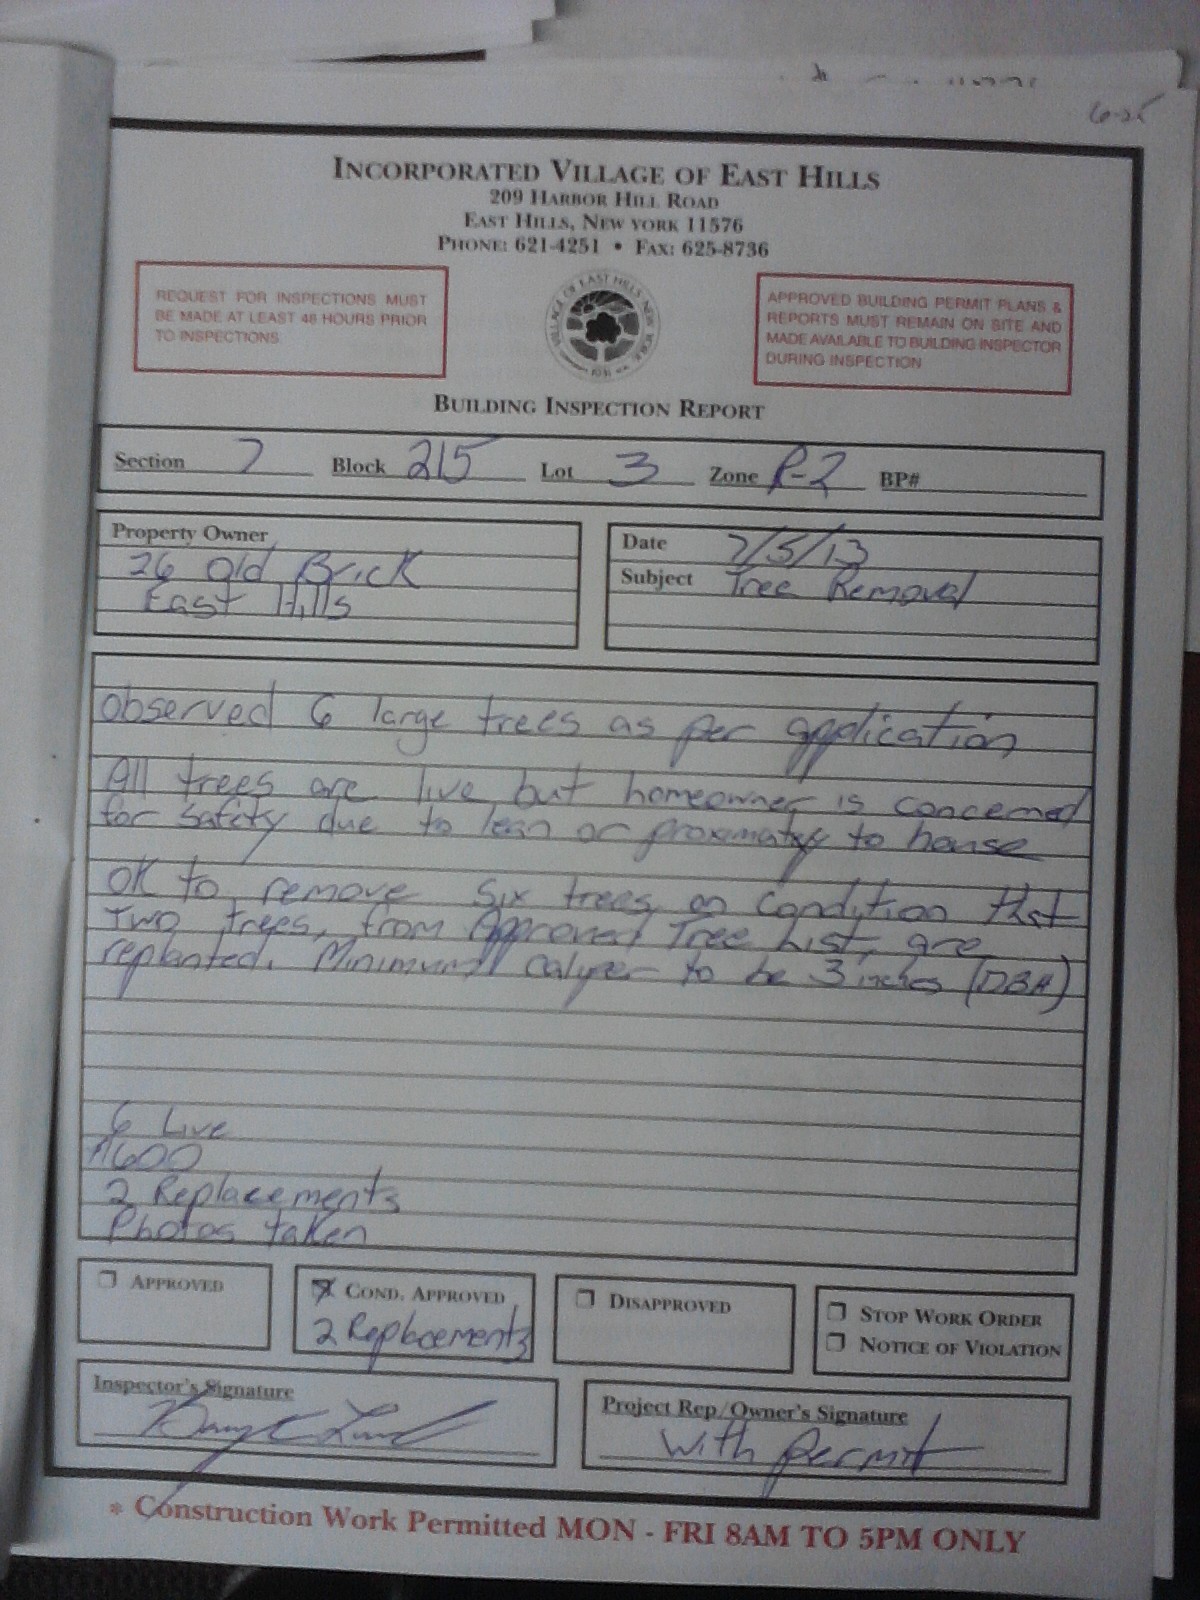 6-25
INCORPORATED VILLAGE OF EAST HILLS
209 HARBOR HILL ROAD
EAST HILLS, NEW YORK 11576
PHONE: 621-4251 • FAX: 625-8736
REQUEST FOR INSPECTIONS MUST
BE MADE AT LEAST 48 HOURS PRIOR
TO INSPECTIONS
VILLAGE OF EAST HILLS NEW YORK
1931
APPROVED BUILDING PERMIT PLANS &
REPORTS MUST REMAIN ON SITE AND
MADE AVAILABLE TO BUILDING INSPECTOR
DURING INSPECTION
BUILDING INSPECTION REPORT
Section 7 Block 215 Lot 3 Zone R-2 BP#
Property Owner
26 Old Brick
East Hills
Date 7/5/13
Subject Tree Removal
Observed 6 large trees as per application
All trees are live, but homeowner is concerned
for safety due to lean or proximatey to house
OK to remove six trees, on condition that
Two trees, from Approved Tree List, are
replanted. Minimum calyper to be 3 inches (DBH)
6 Live
$600
2 Replacements
Photos taken
APPROVED
COND. APPROVED
2 Replacements
DISAPPROVED
STOP WORK ORDER
NOTICE OF VIOLATION
Inspector's Signature
Project Rep/Owner's Signature
With Permit
* Construction Work Permitted MON - FRI 8AM TO 5PM ONLY